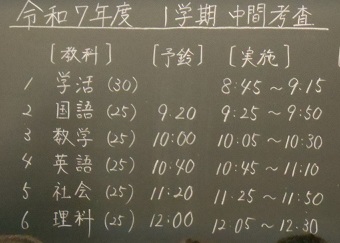 令和7年度 1学期 中間考査
[教科] [予鈴] [実施]
1 学活 (30) 8:45 ~ 9:15
2 国語 (25) 9:20 9:25 ~ 9:50
3 数学 (25) 10:00 10:05 ~ 10:30
4 英語 (25) 10:40 10:45 ~ 11:10
5 社会 (25) 11:20 11:25 ~ 11:50
6 理科 (25) 12:00 12:05 ~ 12:30